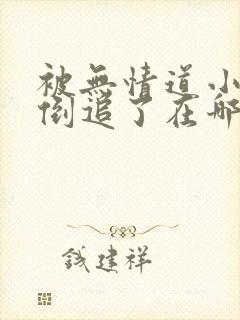 被無情道小
倒追了在哪
錢建祥